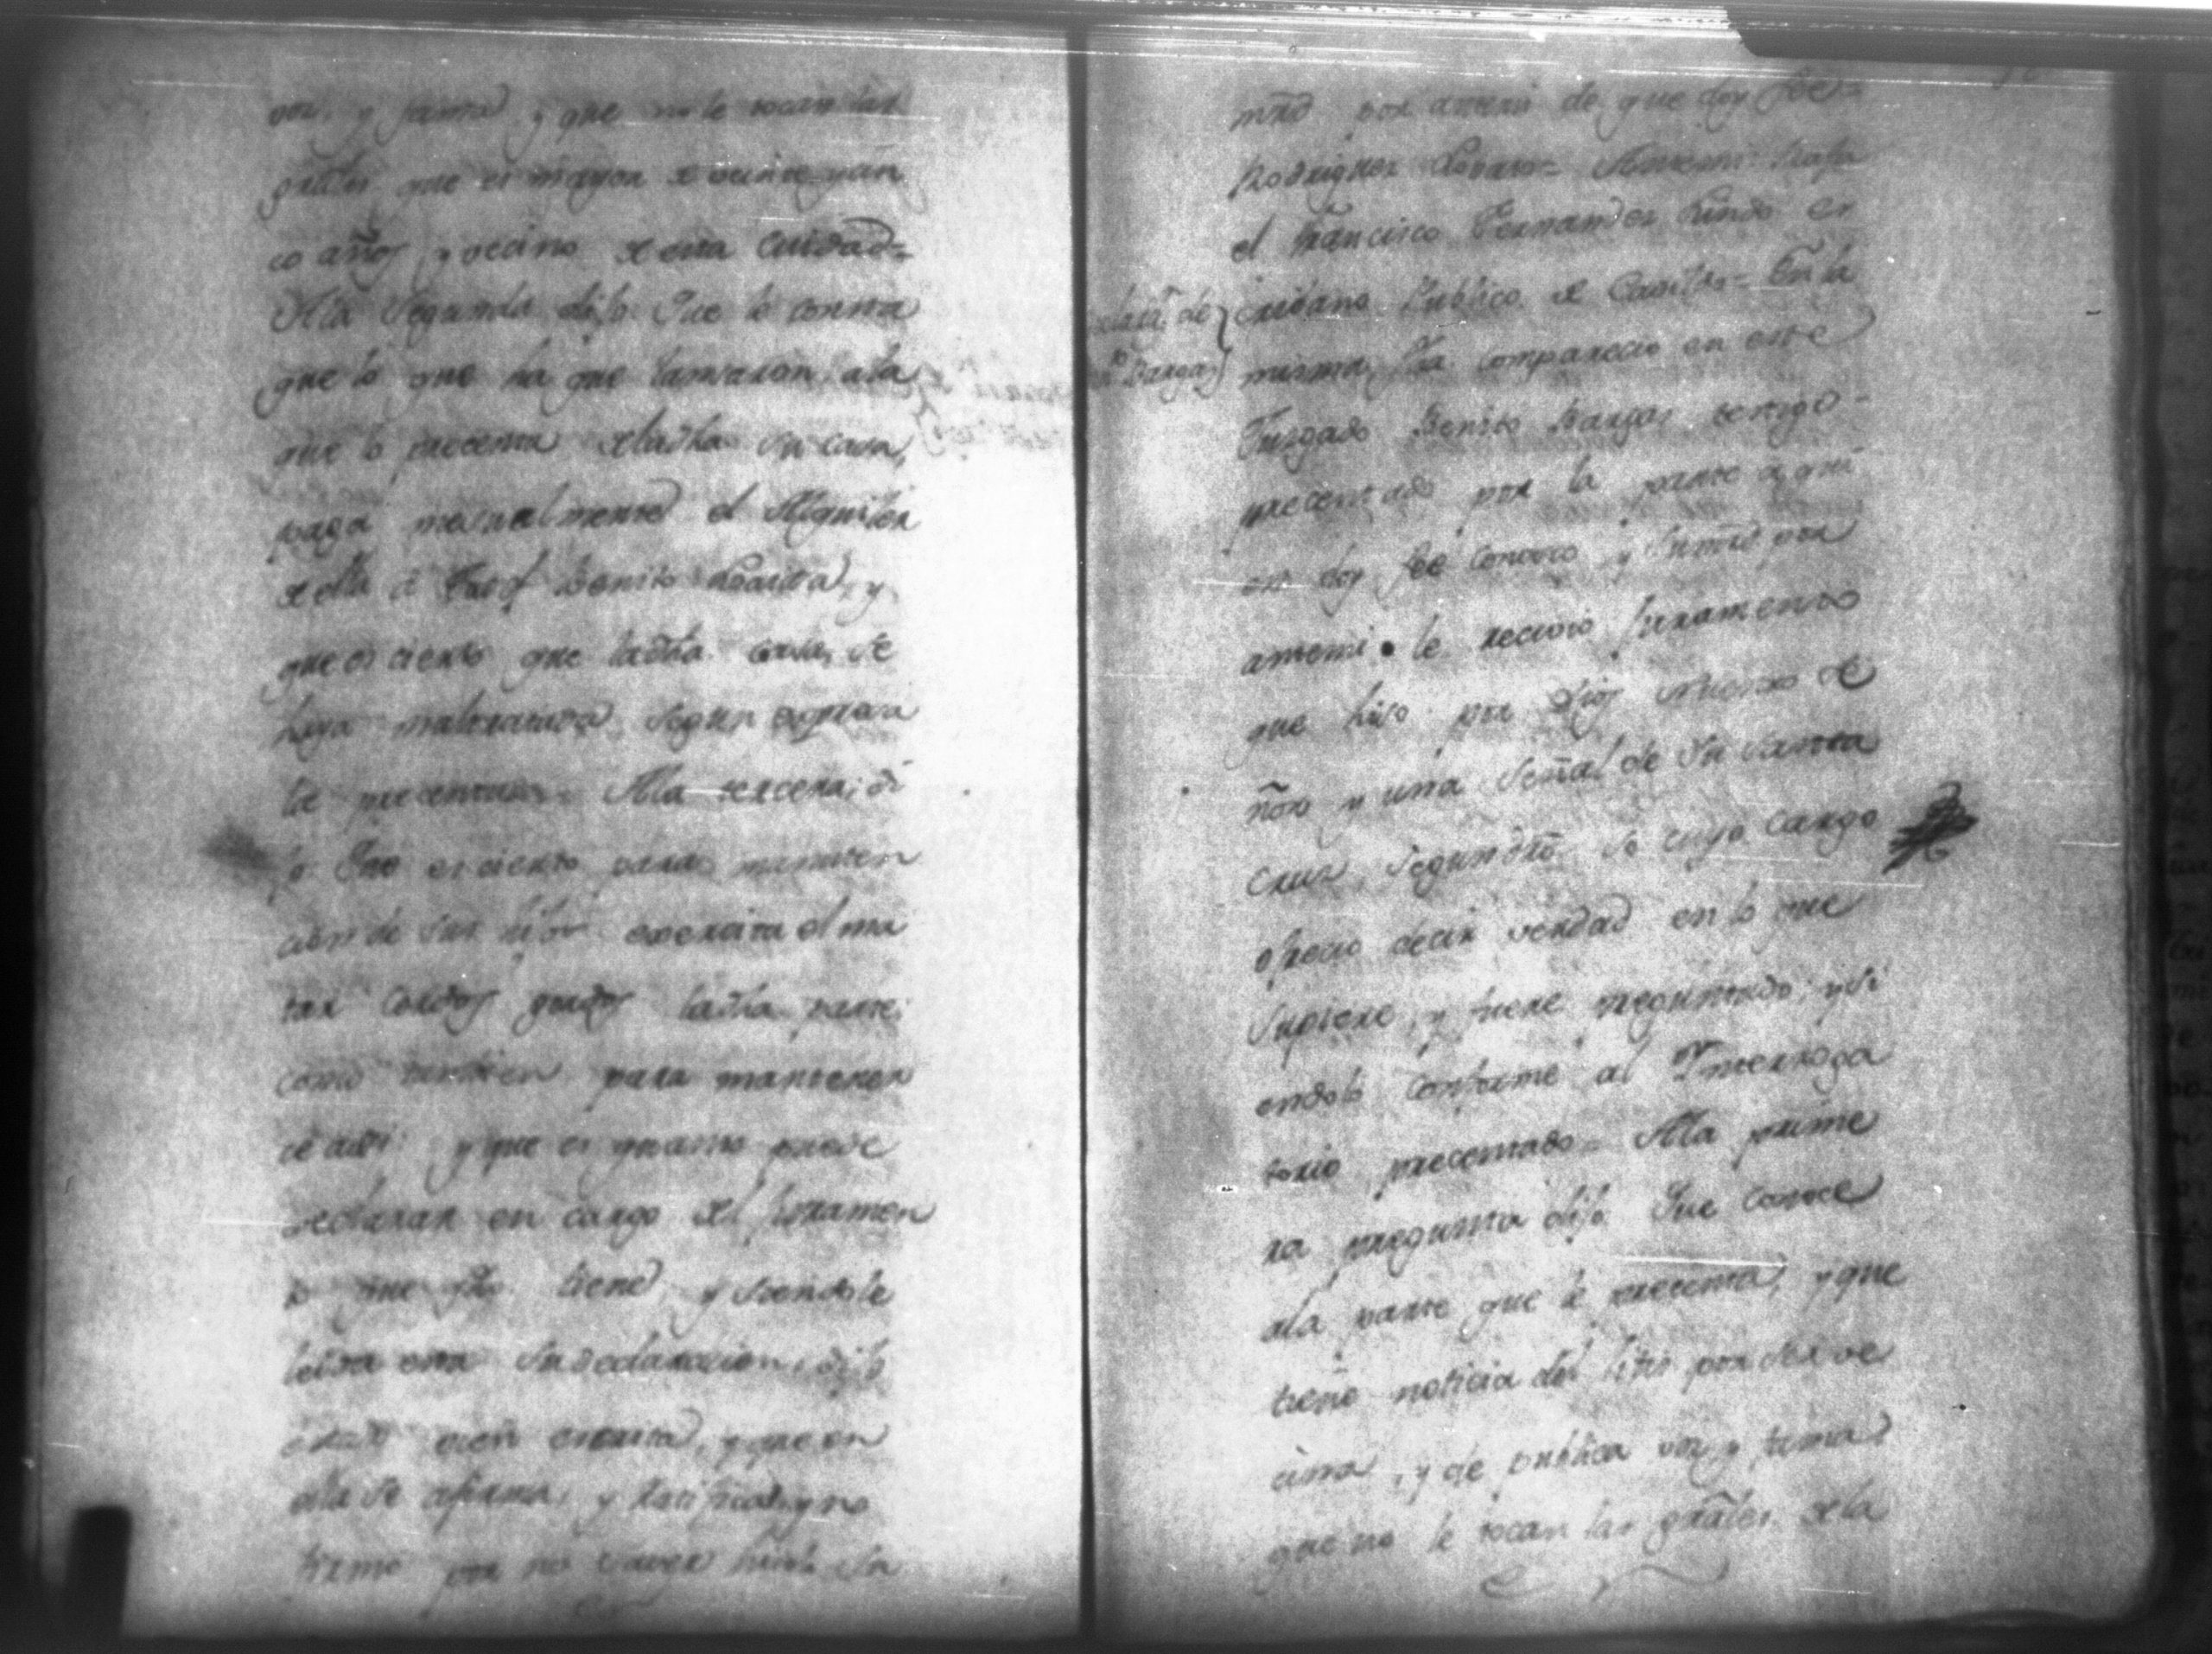 voz, y fama y que no le tocan las
grāles que es mayor de veinte y cin
co años y vecino de esta Ciudad=
Ala Segunda dijo Que le consta
que lo que ha que lansaron, ala
que lo precenta dela dha su casa,
paga mensualmente el Alquiler
de ella á Benito y
que es cierto que la dha casa, se
haya maltratada segun expresa
la precentada. Ala tercera, di
jo Que es cierto para manuten
cion de sus hijos exercita el ma
tar Cerdos gordos la dha parte
como tambien para mantener
ce asi y que es quanto puede
declarar en cargo del Juramen
to que fho tiene, y siendole
leida esta su declaracion, dijo
estar bien escrita, y que en
ella se afirma, y ratifica, y no
firmó por no saver hisolo Su
mrd por antemi de que doy fee=
Rodriguez = Antemi Rafa
el Francisco Fernandez es
crivano Publico de Cavildo= En la
misma fha comparecio en este
Jusgado Benito Bargas testigo
precentado por la parte a qui
en doy fee conosco y Su mrd por
antemi le recivio Juramento
que hiso por Dios Nuestro Se
ñor y una Señal de Su Santa
Cruz, segun dro so cuyo cargo
ofrecio decir verdad en lo que
supiere, y fuere preguntado; y si
endolo conforme al Interroga
torio precentado= Ala prime
ra pregunta dijo Que conoce
ala parte que le precenta, y que
tiene noticia del litis por ser ve
cina, y de publica voz y fama
que no le tocan las grāles dela
de
Bargas